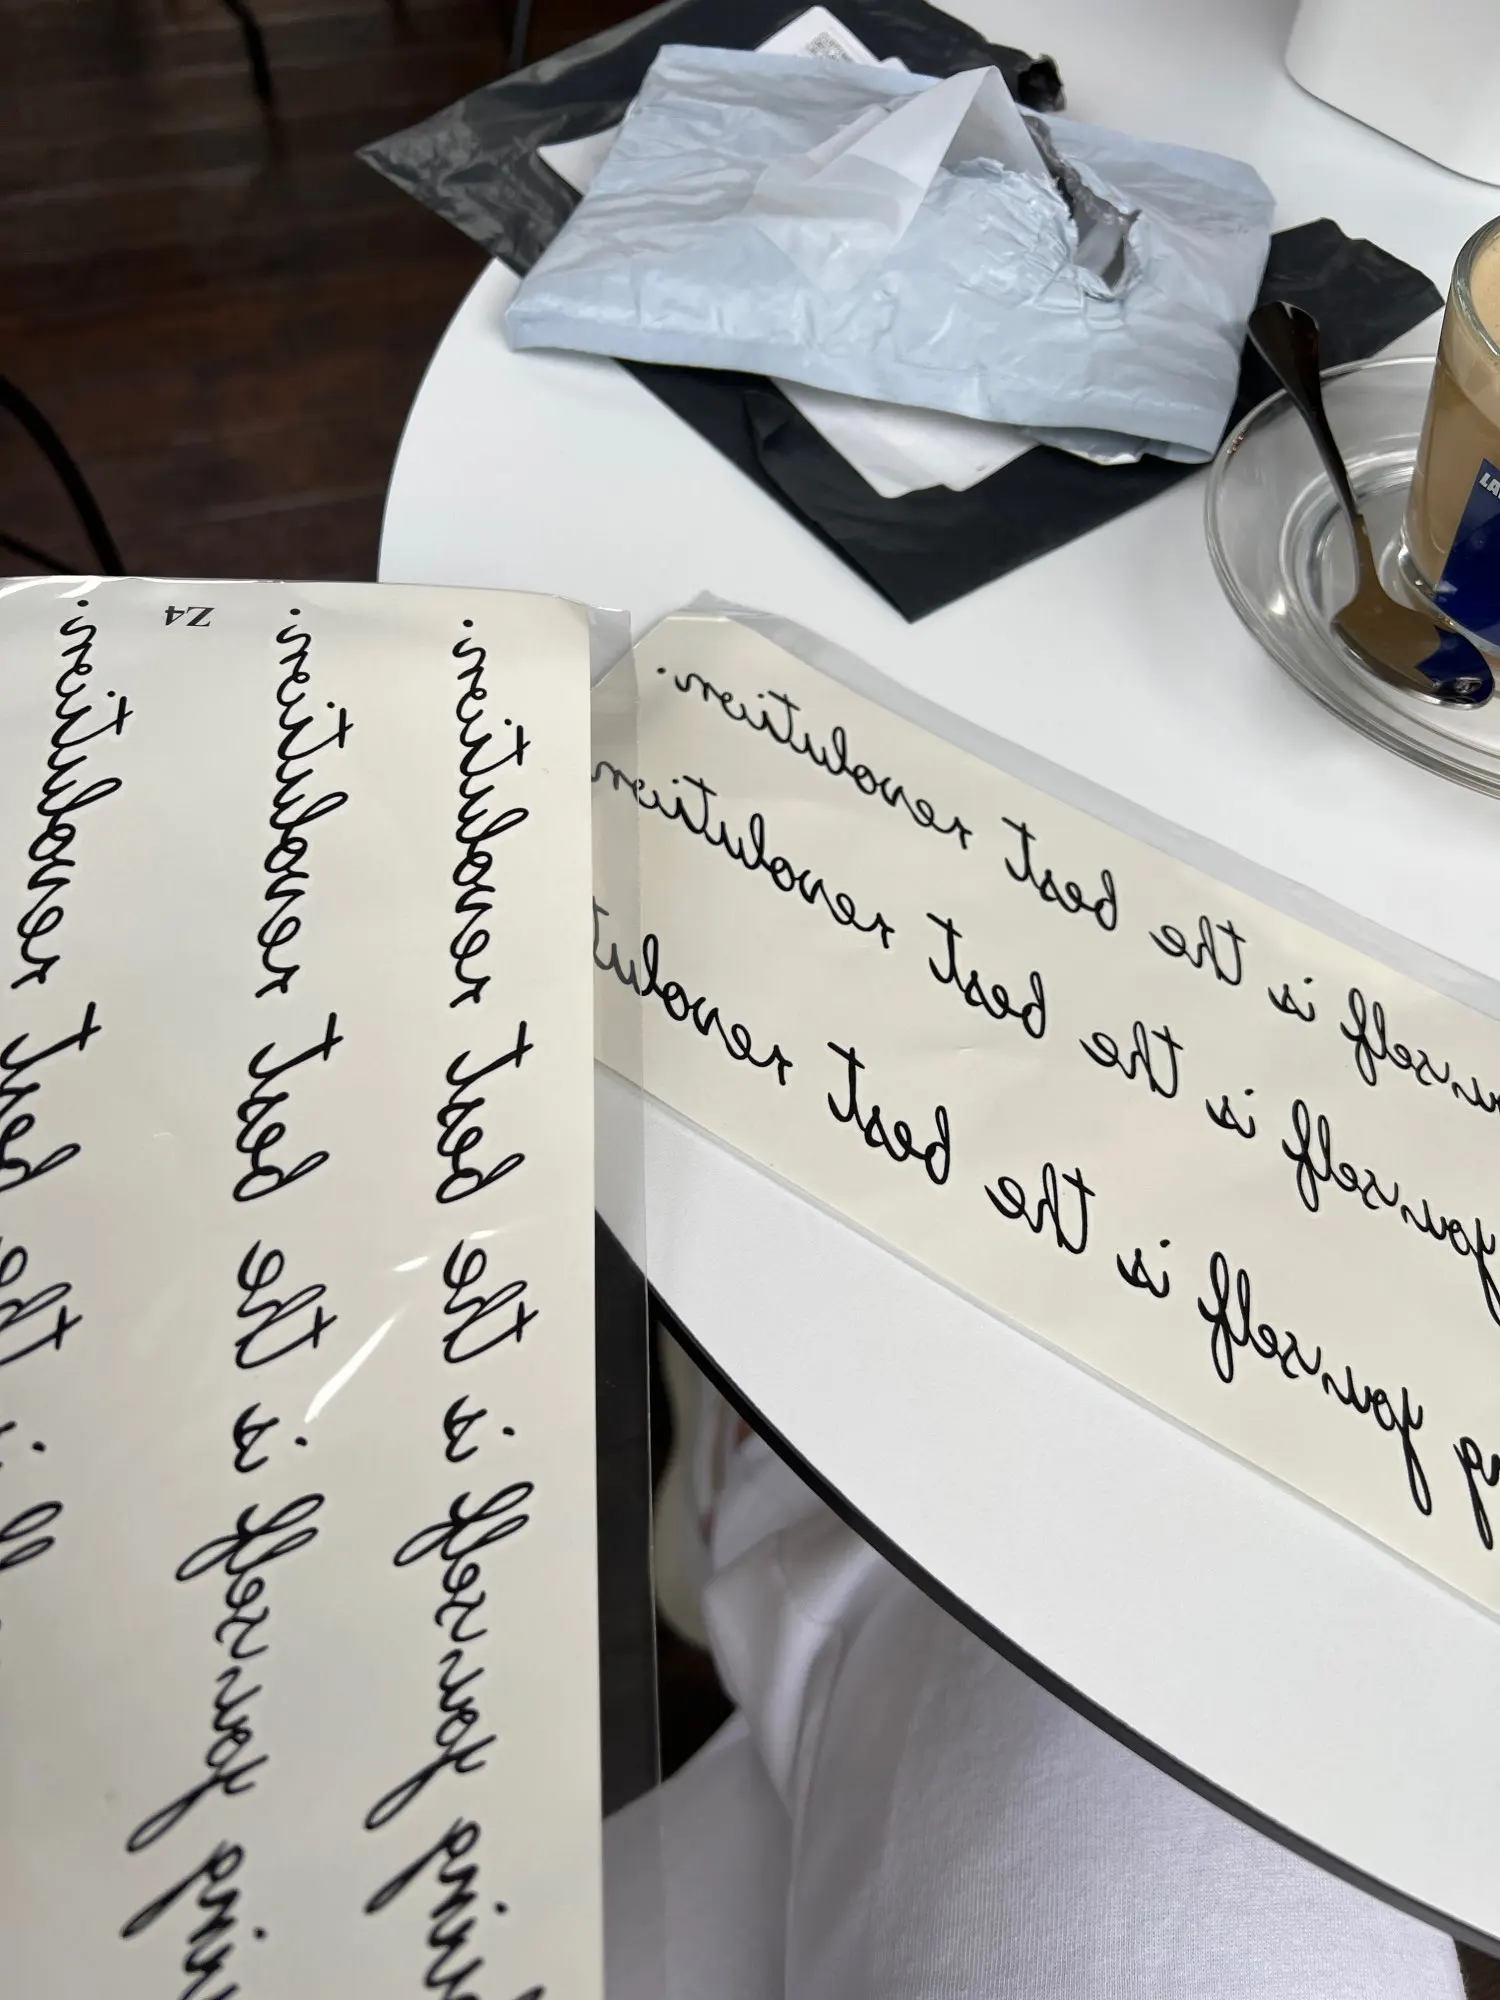 Z4
yourself is the best revolution.
yourself is the best revolution.
is the best revolution.
is the best revolution.
yourself is the best revolution
yourself is the best